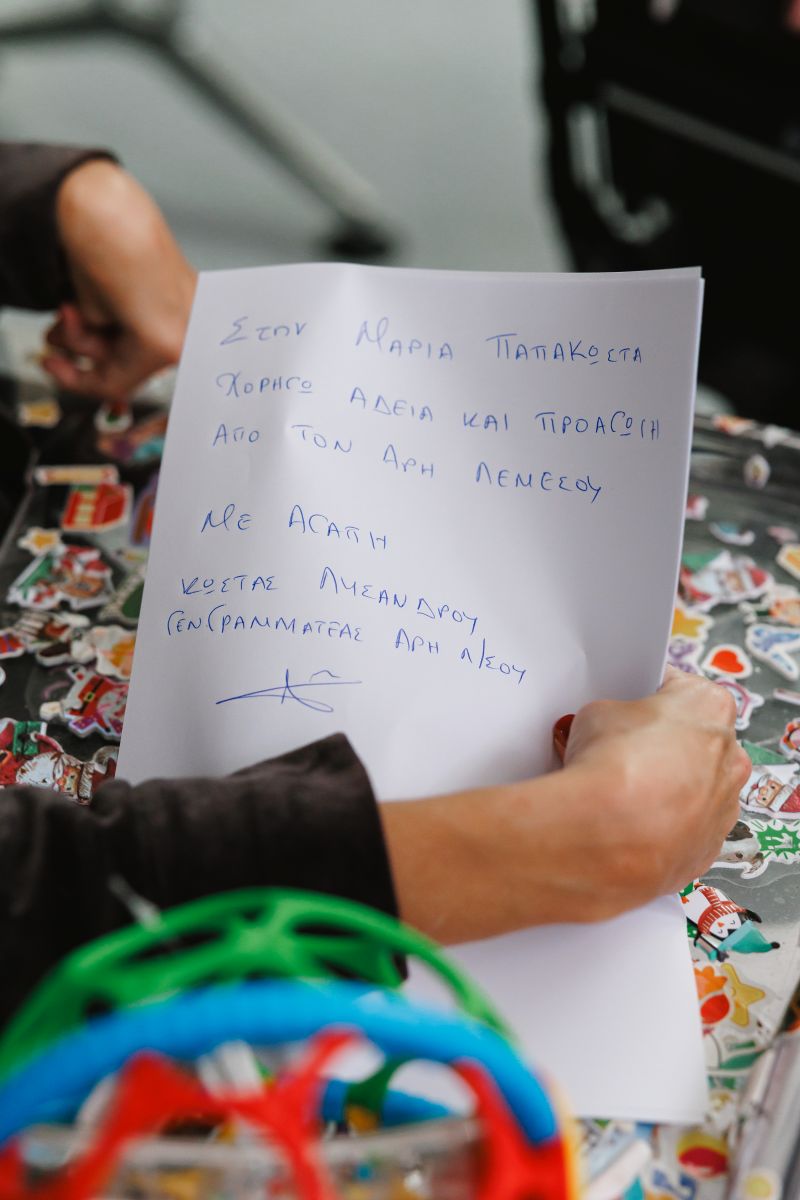 Στην Μαρια Παπακωστα
Χορηγω αδεια και προαγωγη
απο τον Αρη Λεμεσου
Με αγαπη
Κωστας Λυσανδρου
Γεν Γραμματεας Αρη Λ/σου